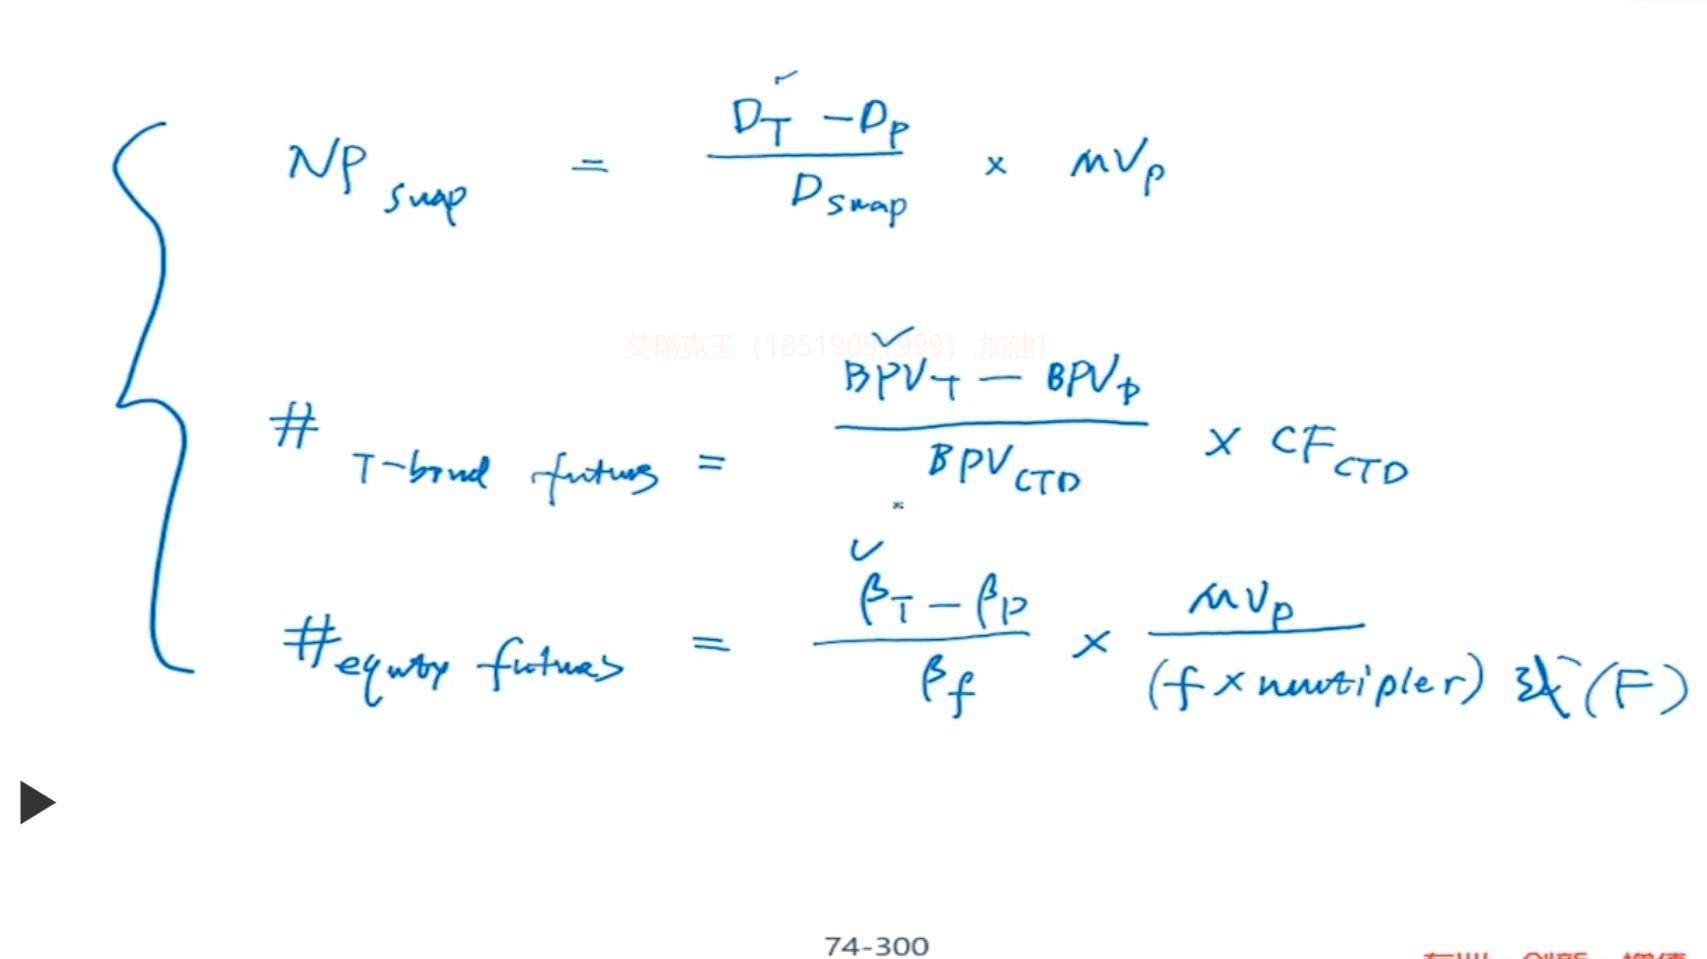 NP swap = (D_T - D_P) / D_swap × MV_P
艾瑞克王（18519091999）,加油！
# T-bond futures = (BPV_T - BPV_P) / BPV_CTD × CF_CTD
# equity futures = (β_T - β_P) / β_f × MV_P / (f × multipler) 或 (F)
74-300